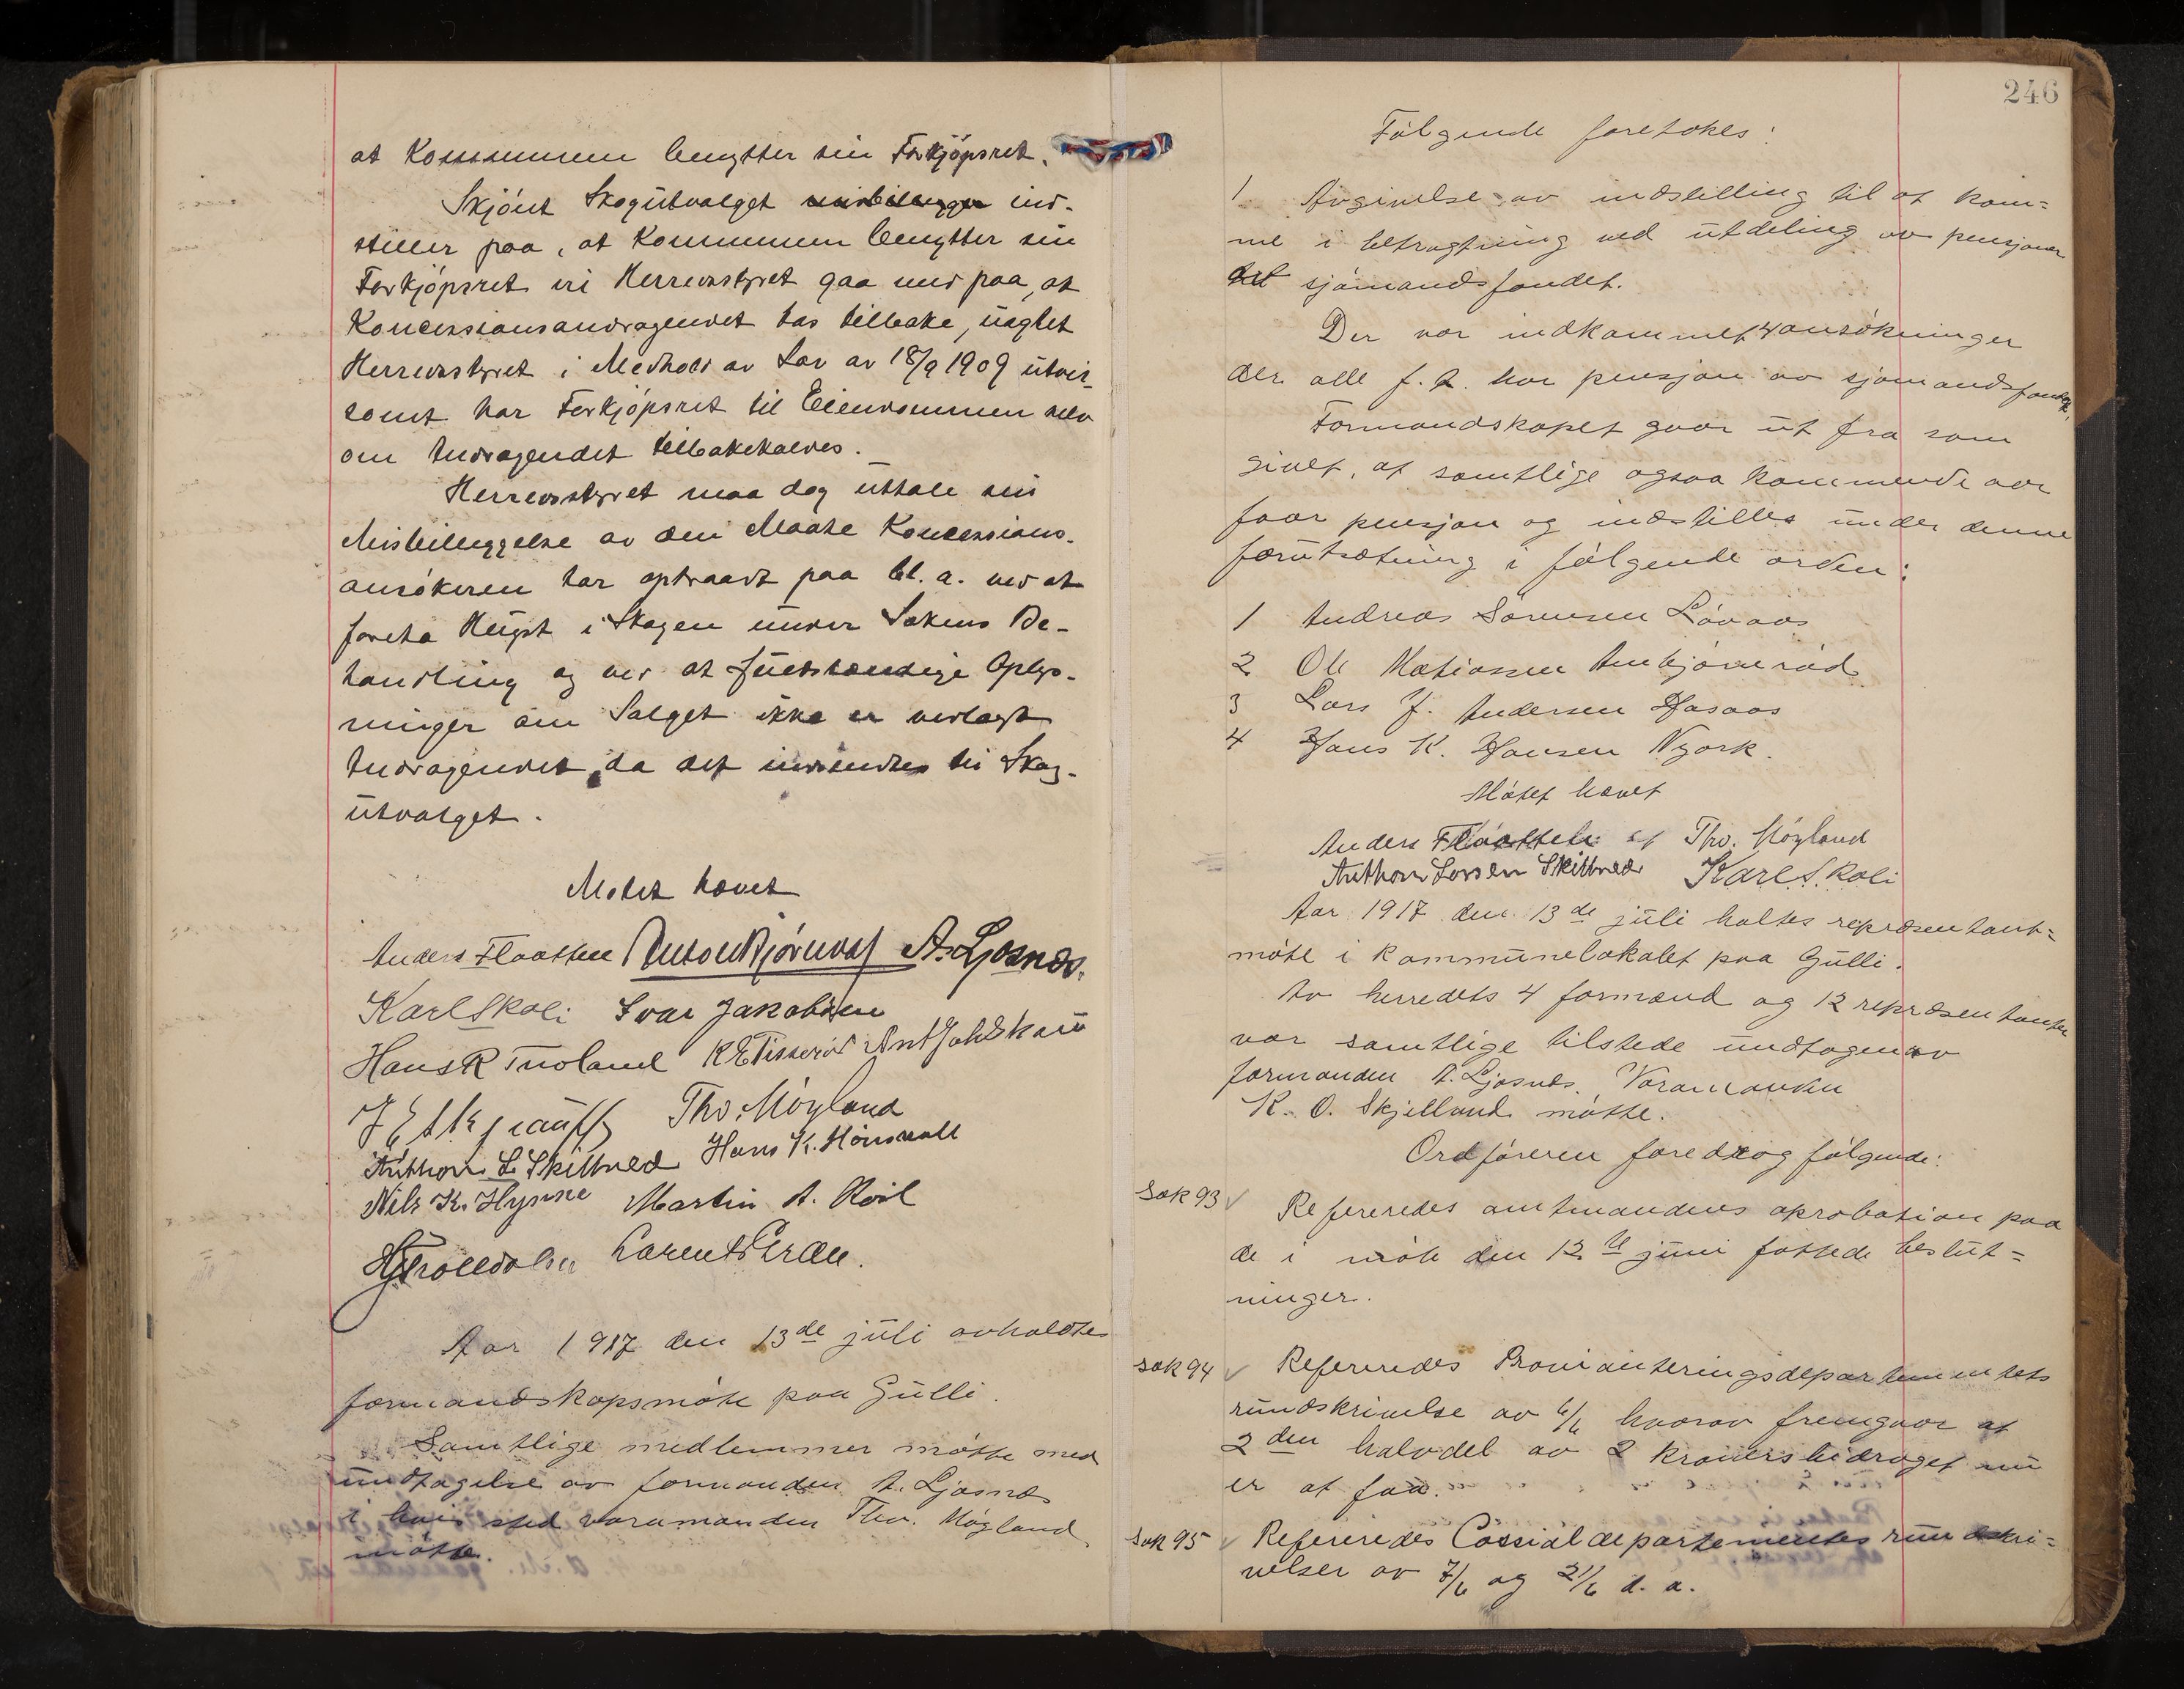 at Kommunen benytter sin Forkjöpsret.
Skjönt Skogutvalget misbilligger ind-
stiller paa, at Kommunen benytter sin
Forkjöpsret vil Herredsstyret gaa med paa, at
Koncessionsandragendet tas tilbake, uagtet
Herredsstyret i Medhold av Lov av 18/9 1909 utvil-
somt har Forkjöpsret til Eiendommen selv
om Andragendet tilbakekaldes.
Herredsstyret maa dog uttale sin
Misbilliggelse av den Maate Koncessions-
ansökeren har optraadt paa bl. a. ved at
foreta Hugst i Skogen under Sakens Be-
handling og ved at fuldstændige Oplys-
ninger om Salget ikke er vedlagt
Andragendet, da det indsendtes til Skog-
utvalget.
Mötet hævet
Anders Flaatten Anton Bjørnvaf A. Ljosnæs.
Karl Skoli Ivar Jakobsen
Hans R Tuoland K E Tisseröd Ant Joh Skau
Tho. Möyland
Anthon L. Skittned Hans K. Hönsvall
Nils K. Hynne Martin A. Röil
H Trolldalen Laurent Olsen.
Aar 1917 den 13de juli avholdtes
formandskapsmöte paa Gulli.
Samtlige medlemmer mötte med
undtagelse av formanden A. Ljosnæs
i hvis sted varamanden Thv. Möyland
mötte.
246
Fölgende foretokes:
1 Avgivelse av indstilling til at kom=
me i betragtning ved utdeling av pensjoner
det sjömandsfondet.
Der var indkommet 4 ansökninger
der alle f. t. har pensjon av sjömandsfondet.
Formandskapet gaar ut fra som
givet, at samtlige ogsaa kommende aar
faar pensjon og indstilles under denne
forutsætning i fölgende orden:
1 Andreas Sörensen Lövaas
2 Ole Matiassen Ambjörnröd
3 Lars J. Andersen Hasaas
4 Hans K. Hansen Nyork.
Mötet hævet
Anders Flaatten Tho. Möyland
Anthon Larsen Skittned Karl Skoli
Aar 1917 den 13de juli holtes repræsentant=
möte i kommunelokalet paa Gulli.
Av herredets 4 formænd og 12 repræsentanter
var samtlige tilstede undtagen av
formanden A. Ljosnæs. Varamanden
K. O. Skjelland mötte.
Ordföreren foredrog fölgende:
Sak 93 Refereredes amtmandens aprobation paa
de i möte den 12te juni fattede beslut=
ninger.
Sak 94 Refereredes Provianteringsdepartementets
rundskrivelse av 6/6 hvorav fremgaar at
2den halvdel av 2 kronersbidraget nu
er at faa.
Sak 95 Refereredes Cossialdepartementes rundskri=
velser av 7/6 og 21/6 d. a.